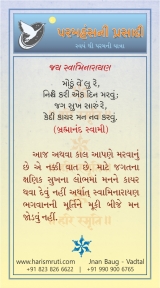 પરમહંસની પ્રસાદી
જય સ્વામિનારાયણ
મોડું વે'લું રે,
નિશ્ચે કરી એક દિન મરવું;
જગ સુખ સારું રે,
કેદી કાયર મન નવ કરવું.
(બ્રહ્માનંદ સ્વામી)
આજ અથવા કાલ આપણે મરવાનું
છે એ નક્કી વાત છે. માટે જગતના
ક્ષણિક સુખના લોભમાં મનને કાયર
થવા દેવું નહીં અર્થાત્ સ્વામિનારાયણ
ભગવાનની મૂર્તિને મૂકી બીજે મન
જોડવું નહીં.
www.harismruti.com | Jnan Baug - Vadtal
+91 823 826 6622 | +91 990 900 6765